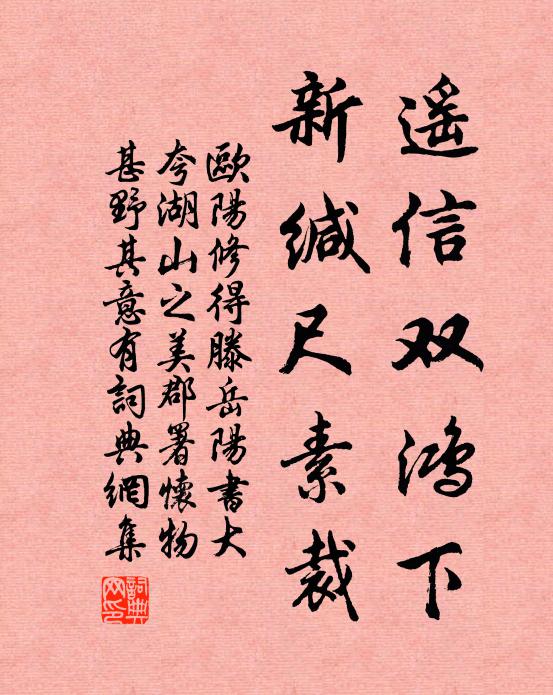 遥信双鸿下
新缄尺素裁
歐陽修得滕岳陽書大
夸湖山之美郡署懷物
甚野其意有詞典網集
詞典網印